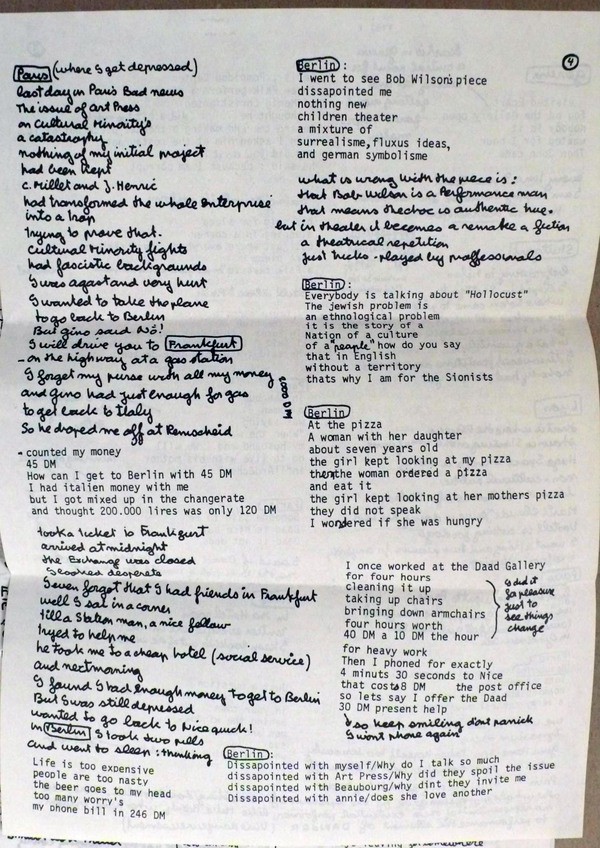 4
Paris (where I get depressed)
last day in Paris Bad news
The issue of art Press
on Cultural Minority's
a catastrophy
nothing of my initial project
had been kept
C. Millet and J. Henric
had transformed the whole enterprise
into a trap
trying to prove that.
Cultural Minority fights
had fascistic backgrounds
I was agast and very hurt
I wanted to take the plane
to go back to Berlin
But gino said NO!
I will drive you to Frankfurt
- on the highway at a gas station
I forget my purse with all my money
6000 DM
and gino had just enough for gas
to get back to Italy
So he droped me off at Remscheid
- counted my money
45 DM
How can I get to Berlin with 45 DM
I had italien money with me
but I got mixed up in the changerate
and thought 200.000 lires was only 120 DM
took a ticket to Frankfurt
arrived at midnight
the Exchange was closed
I looked desperate
I even forgot that I had friends in Frankfurt
well I sat in a corner
till a Station man, a nice fellow
tryed to help me
he took me to a cheap hotel (social service)
and next morning
I found I had enough money to get to Berlin
But I was still depressed
wanted to go back to Nice quick!
in Berlin I took two pills
and went to sleep: thinking
Life is too expensive
people are too nasty
the beer goes to my head
too many worry's
my phone bill in 246 DM
Berlin:
I went to see Bob Wilson's piece
dissapointed me
nothing new
children theater
a mixture of
surrealisme,fluxus ideas,
and german symbolisme
what is wrong with the piece is:
that Bob Wilson is a Performance man
that means thedoc is authentic true.
but in theater it becomes a remake a fiction
a theatrical repetition
just tricks - played by proffessionals
Berlin:
Everybody is talking about "Hollocust"
The jewish problem is
an ethnological problem
it is the story of a
Nation of a culture
of a "people" how do you say
that in English
without a territory
thats why I am for the Sionists
Berlin
At the pizza
A woman with her daughter
about seven years old
the girl kept looking at my pizza
then the woman ordered a pizza
and eat it
the girl kept looking at her mothers pizza
they did not speak
I wondered if she was hungry
I once worked at the Daad Gallery
for four hours
cleaning it up
taking up chairs
bringing down armchairs
four hours worth
40 DM a 10 DM the hour
I did it
for pleasure
just to
see things
change
for heavy work
Then I phoned for exactly
4 minuts 30 seconds to Nice
that costs 8 DM the post office
so lets say I offer the Daad
30 DM present help
so keep smiling dont panick
I wont phone again
Berlin:
Dissapointed with myself/Why do I talk so much
dissapointed with Art Press/Why did they spoil the issue
dissapointed with Beaubourg/why dint they invite me
Dissapointed with annie/does she love another